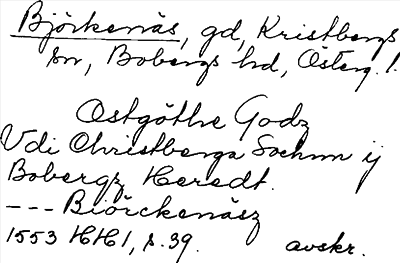 Björkenäs, gd, Kristbergs
sn, Bobergs hd, Österg. l.
Ostgöthe Godz
Vdi Christberga Sochnn ij
Bobergz Heredt.
--- Biörckenäsz
1553 HH 1, s. 39. avskr.